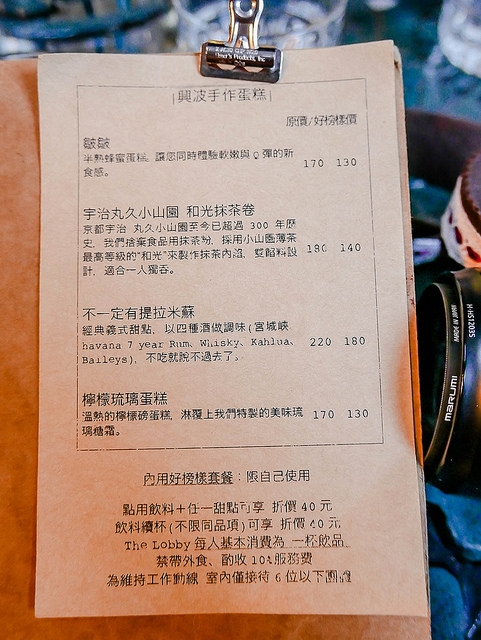 興波手作蛋糕
原價/好榜樣價
皺皺
半熟蜂蜜蛋糕, 讓您同時體驗軟嫩與 Q 彈的新
食感。
170 130
宇治丸久小山園 和光抹茶卷
京都宇治 丸久小山園至今已超過 300 年歷
史, 我們捨棄食品用抹茶粉, 採用小山園薄茶
最高等級的"和光"來製作抹茶內餡, 雙餡料設
計, 適合一人獨吞。
180 140
不一定有提拉米蘇
經典義式甜點, 以四種酒做調味(宮城峽
havana 7 year Rum、Whisky、Kahlua、
Baileys), 不吃就說不過去了。
220 180
檸檬琉璃蛋糕
溫熱的檸檬磅蛋糕, 淋覆上我們特製的美味琉
璃糖霜。
170 130
內用好榜樣套餐：限自己使用
點用飲料＋任一甜點可享 折價 40 元
飲料續杯(不限同品項)可享 折價 40 元
The Lobby 每人基本消費為 一杯飲品
禁帶外食、酌收 10%服務費
為維持工作動線 室內僅接待 6 位以下團體
marumi
MADE IN JAPAN
H-HS12035